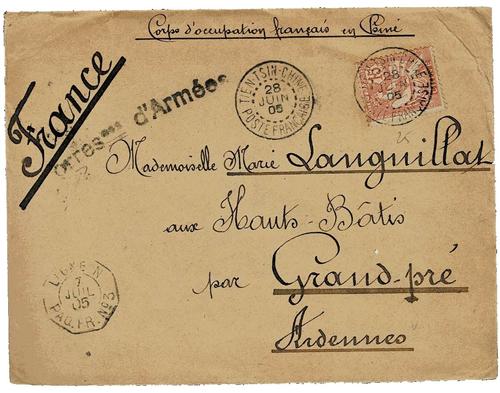 Corps d'occupation français en Chine
France
Corres ces d'Armées
TIEN-TSIN-CHINE
28
JUIN
05
POSTE FRANÇAISE
TIEN-TSIN-CHINE
28
JUIN
05
POSTE FRANÇAISE
Mademoiselle Marie Languillat
aux Hauts-Bâtis
par Grand-pré
Ardennes
LIGNE N
7
JUIL
05
PAQ. FR. Nº3